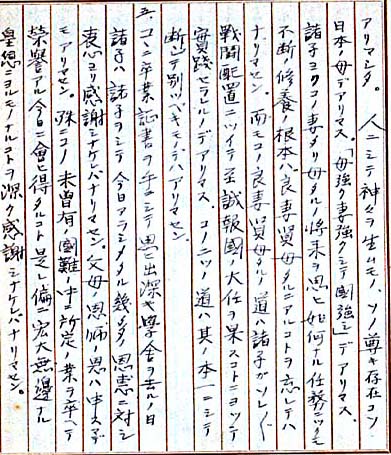 アリマシタ。 人ニシテ神々ヲ生ムモノ、ソノ尊キ存在コソ
日本ノ母デアリマス。「母強ク妻強クシテ國強シ」デアリマス、
諸子ヨクコノ妻タリ母タルノ将来ヲ思ヒ如何ナル任務ニツクモ
不断ノ修養ノ根本ハ良妻賢母タルニアルコトヲ忘レテハ
ナリマセン。而モコノ良妻賢母タルノ道ハ諸子ガソレゾレ
戦闘配置ニツイテ至誠報國ノ大任ヲ果スコトニヨツテ
實践セラレルノデアリマス。コノ二ツノ道ハ其ノ本一ニシテ
断ジテ別ツベキモノデハアリマセン。
三、コノ卒業証書ヲ手ニシテ思ヒ出深キ學舎ヲ去ルノ日
諸子ハ諸子ヲシテ今日アラシメタル幾多ノ恩恵ニ対シ
衷心ヨリ感謝シナケレバナリマセン。父母ノ恩師ノ恩ハ申スマデ
モアリマセン。殊ニコノ未曽有ノ國難ノ中ニ所定ノ業ヲ卒ヘテ
榮譽アル今日ニ會シ得タルコト是レ偏ニ宏大無邊ナル
皇恩ニヨルモノナルコトヲ深ク感謝シナケレバナリマセン。